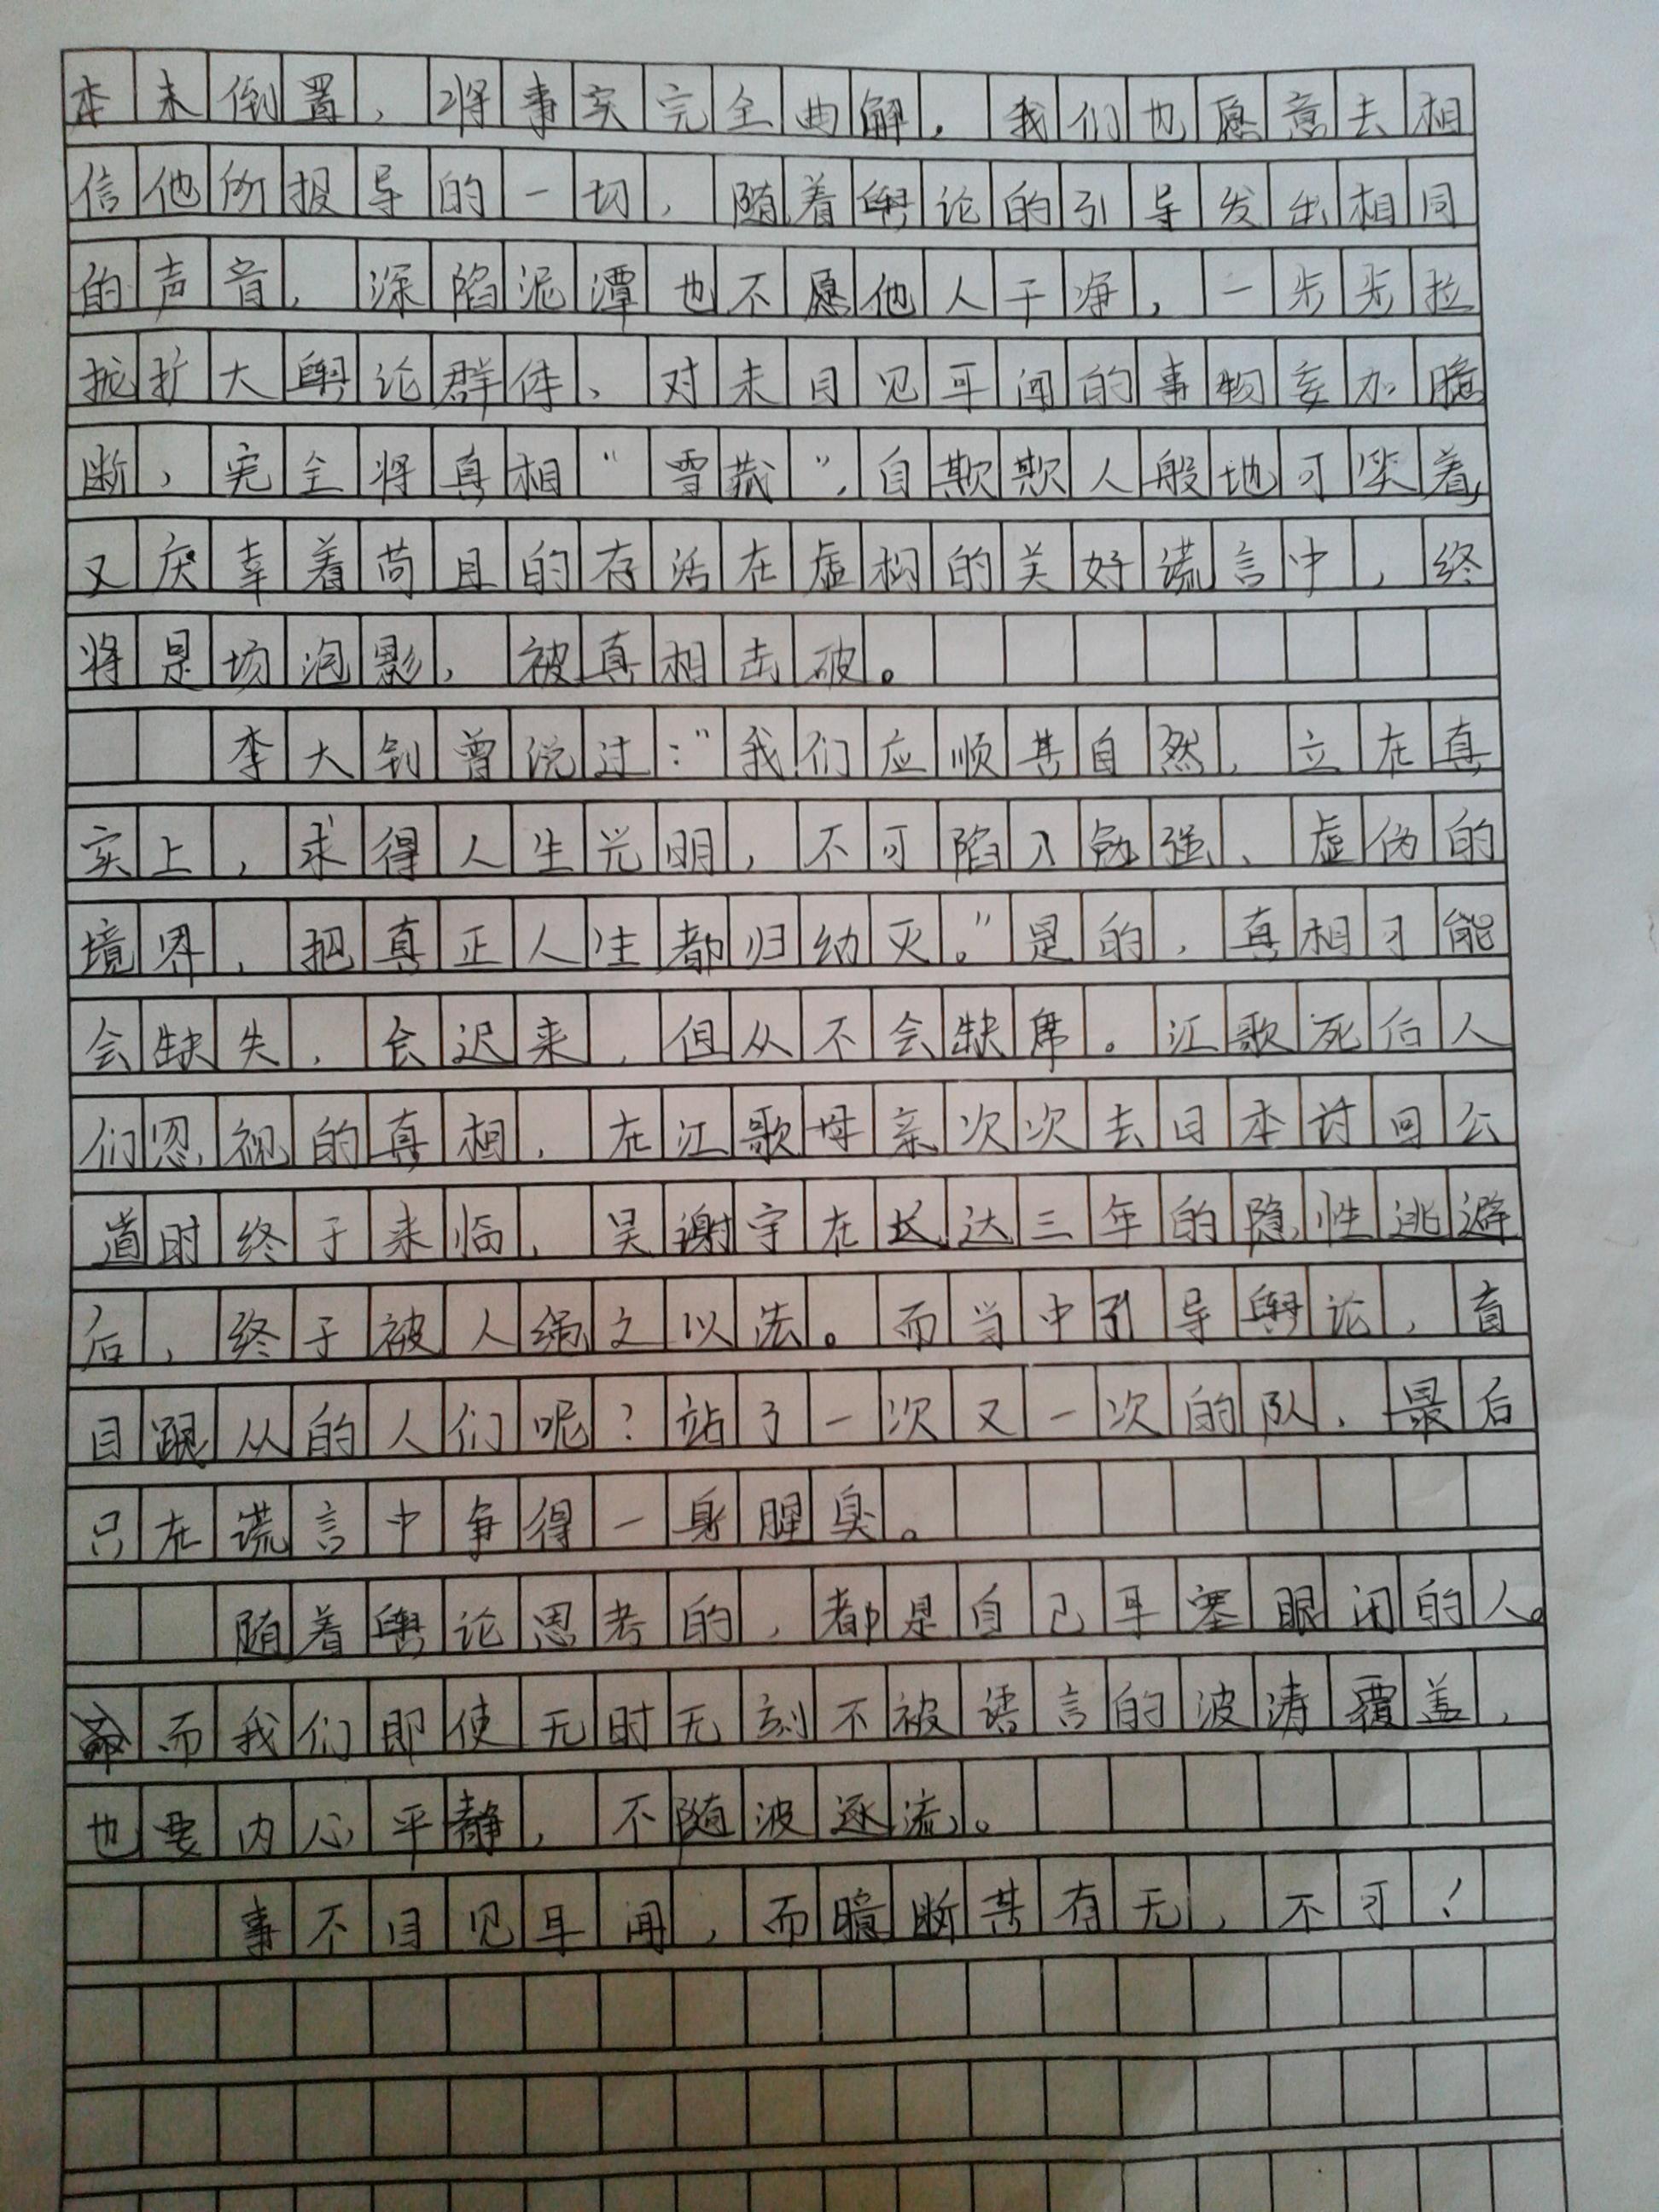 本末倒置，将事实完全曲解，我们也愿意去相
信他所报导的一切，随着舆论的引导发出相同
的声音，深陷泥潭也不愿他人干净，一步步拉
扯扩大舆论群体、对未目见耳闻的事物妄加臆
断，完全将真相“雪藏”，自欺欺人般地可笑着，
又庆幸着苟且的存活在虚构的美好谎言中，终
将是场泡影，被真相击破。
李大钊曾说过：“我们应顺其自然，立在真
实上，求得人生光明，不可陷入勉强、虚伪的
境界，把真正人生都归幼灭。”是的，真相可能
会缺失，会迟来，但从不会缺席。江歌死后人
们忽视的真相，在江歌母亲次次去日本讨回公
道时终于来临，吴谢宇在长达三年的隐性逃避
后，终于被人绳之以法。而当中引导舆论，盲
目跟从的人们呢？站了一次又一次的队，最后
只在谎言中争得一身腥臭。
随着舆论思考的，都是自己耳塞眼闭的人。
而我们即使无时无刻不被语言的波涛覆盖，
也要内心平静，不随波逐流。
事不目见耳闻，而臆断其有无，不可！